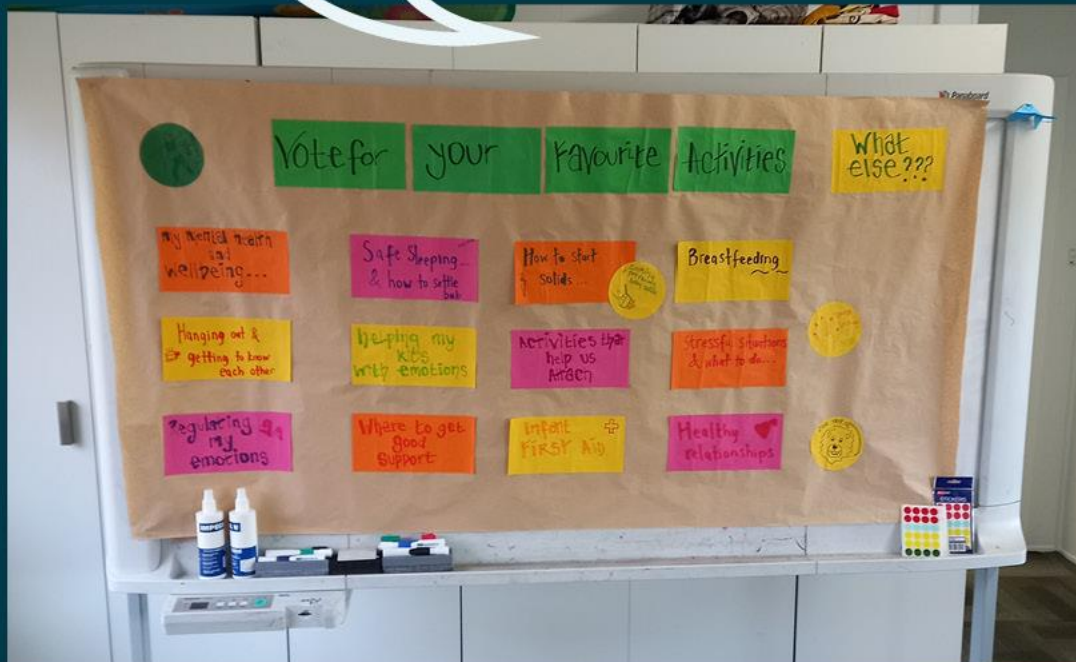 Vote for your Favourite Activities
What
else???
Panaboard
My mental health
and
wellbeing...
Safe Sleeping...
& how to settle
bub
How to start
solids...
Breastfeeding
Hanging out &
getting to know
each other
Helping my
kids
with emotions
Activities that
help us
Attach
Stressful situations
& what to do...
Regulating
my
emotions
Where to get
good
support
Infant
FIRST AID
Healthy
relationships
STICKERS